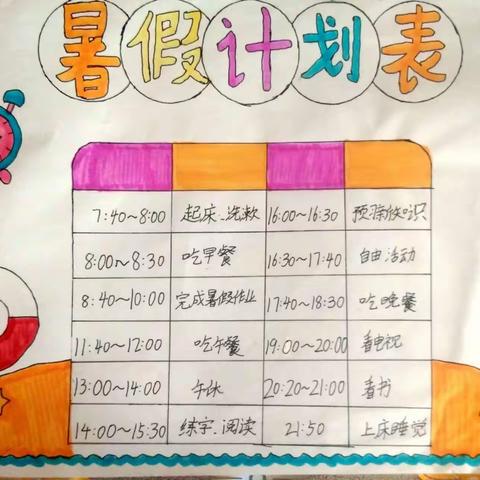 暑假计划表
7:40~8:00 起床、洗漱 16:00~16:30 预习知识
8:00~8:30 吃早餐 16:30~17:40 自由活动
8:40~10:00 完成暑假作业 17:40~18:30 吃晚餐
11:40~12:00 吃午餐 19:00~20:00 看电视
13:00~14:00 午休 20:20~21:00 看书
14:00~15:30 练字、阅读 21:50 上床睡觉